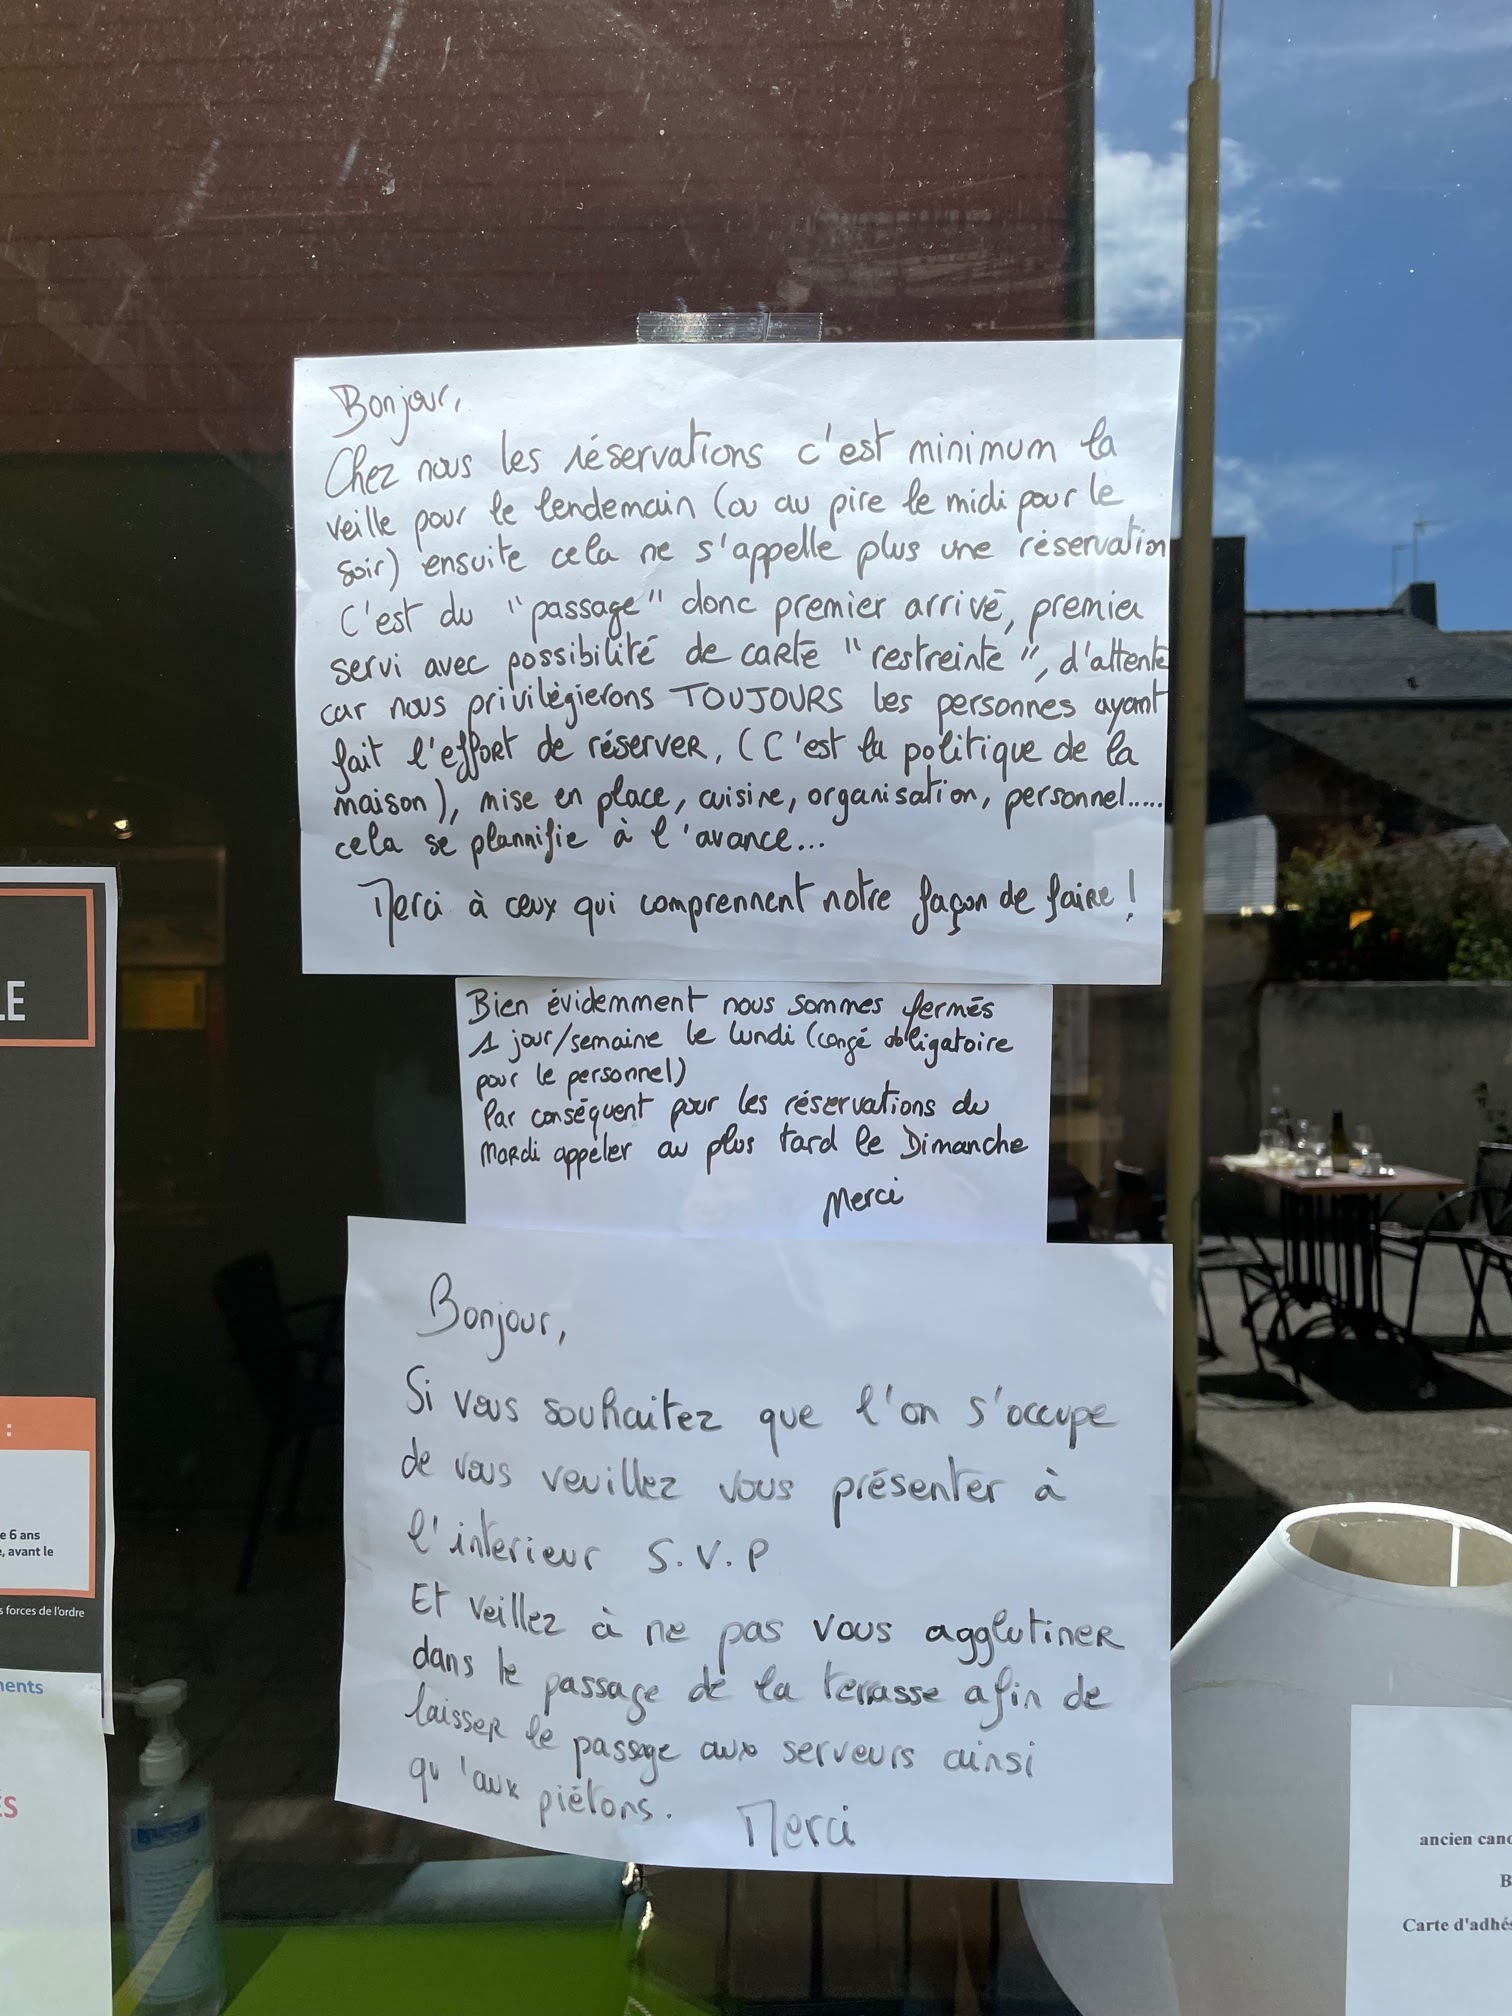 Bonjour,
Chez nous les réservations c'est minimum la
veille pour le lendemain (ou au pire le midi pour le
soir) ensuite cela ne s'appelle plus une réservation
C'est du "passage" donc premier arrivé, premier
servi avec possibilité de carte "restreinte", d'attente
car nous privilégierons TOUJOURS les personnes ayant
fait l'effort de réserver, (C'est la politique de la
maison), mise en place, cuisine, organisation, personnel.....
cela se plannifie à l'avance...
Merci à ceux qui comprennent notre façon de faire !
Bien évidemment nous sommes fermés
1 jour/semaine le lundi (congé obligatoire
pour le personnel)
Par conséquent pour les réservations du
Mardi appeler au plus tard le Dimanche
Merci
Bonjour,
Si vous souhaitez que l'on s'occupe
de vous veuillez vous présenter à
l'interieur S.V.P
Et veillez à ne pas vous agglutiner
dans le passage de la terrasse afin de
laisser le passage aux serveurs ainsi
qu'aux piétons.
Merci
LE
:
e 6 ans
, avant le
s forces de l'ordre
ents
ES
ancien cand
B
Carte d'adhé